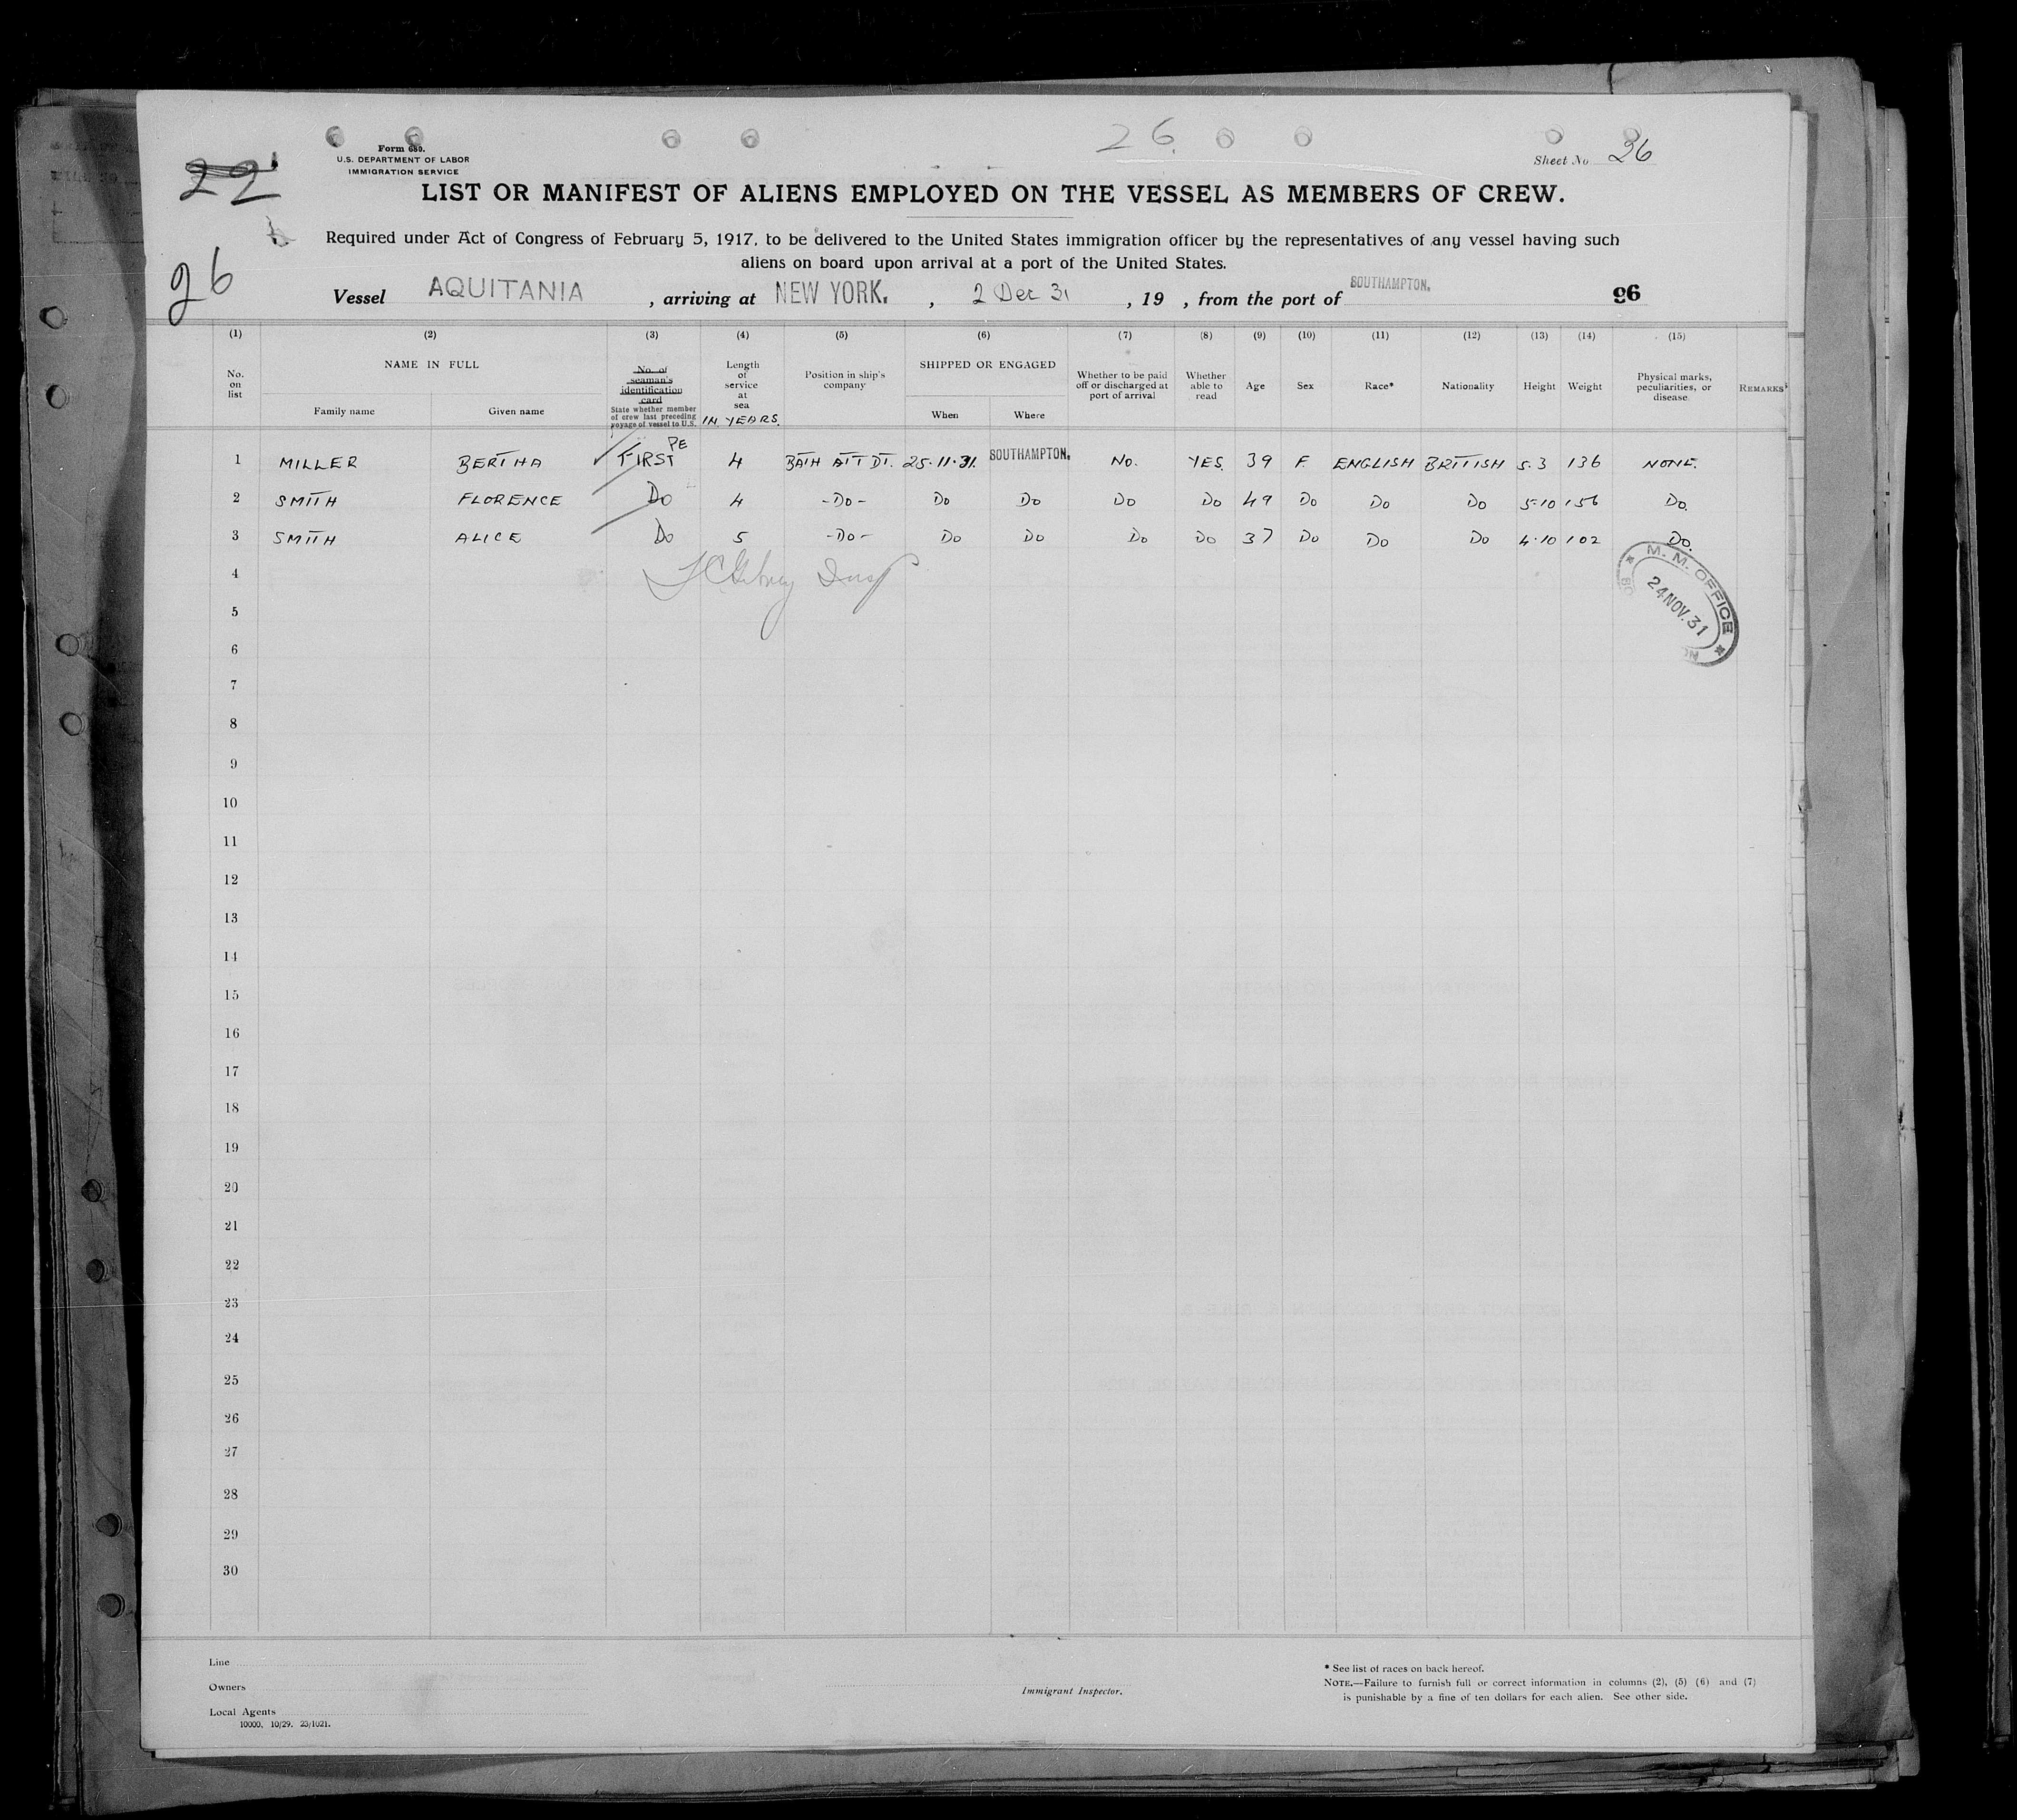 26.
Sheet No 26
Form 680.
U.S. DEPARTMENT OF LABOR
IMMIGRATION SERVICE
22
LIST OR MANIFEST OF ALIENS EMPLOYED ON THE VESSEL AS MEMBERS OF CREW.
Required under Act of Congress of February 5, 1917, to be delivered to the United States immigration officer by the representatives of any vessel having such
aliens on board upon arrival at a port of the United States.
26
Vessel AQUITANIA, arriving at NEW YORK., 2 Dec 31, 19 , from the port of SOUTHAMPTON. 96
(1) (2) (3) (4) (5) (6) (7) (8) (9) (10) (11) (12) (13) (14) (15)
No. on list NAME IN FULL Family name Given name No. of seaman's identification card State whether member of crew last preceding voyage of vessel to U.S. Length of service at sea IN YEARS. Position in ship's company SHIPPED OR ENGAGED When Where Whether to be paid off or discharged at port of arrival Whether able to read Age Sex Race* Nationality Height Weight Physical marks, peculiarities, or disease REMARKS
1 MILLER BERTHA FIRST PE 4 BATH ATTDT. 25.11.31. SOUTHAMPTON. NO. YES. 39 F. ENGLISH BRITISH 5.3 136 NONE.
2 SMITH FLORENCE DO 4 -DO- DO DO DO DO 49 DO DO DO 5.10 156 DO.
3 SMITH ALICE DO 5 -DO- DO DO DO DO 37 DO DO DO 4.10 102 DO.
4
M. M. OFFICE
24 NOV. 31
5
6
7
8
9
10
11
12
13
14
15
16
17
18
19
20
21
22
23
24
25
26
27
28
29
30
Line
Owners
Local Agents
10000. 10/29. 23/1021.
Immigrant Inspector.
* See list of races on back hereof.
NOTE.—Failure to furnish full or correct information in columns (2), (5) (6) and (7)
is punishable by a fine of ten dollars for each alien. See other side.